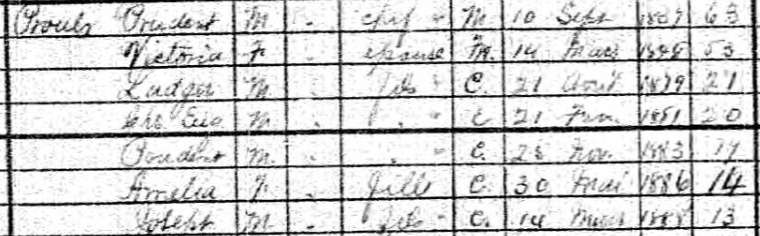 Proulx Prudent M chef M 10 Sept 1837 63
Victoria F épouse M. 14 Mars 53
Ludger M fils C. 21 Aout 1879 21
Chs M C 21 1881 20
Prudent M. C. Nov 1883 17
Amelia F fille C. 30 Mai 1886 14
Joseph M fils C. 14 Mars 1888 13